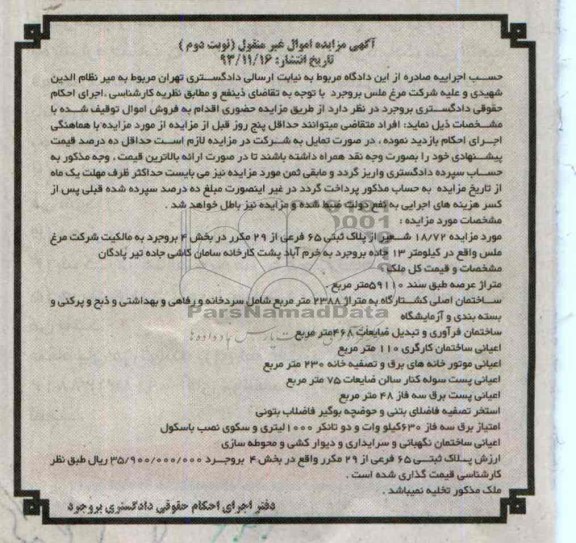 آگهی مزایده اموال غیر منقول (نوبت دوم)
تاریخ انتشار: ۹۳/۱۱/۱۶
حسب اجراییه صادره از این دادگاه مربوط به نیابت ارسالی دادگستری تهران مربوط به میر نظام الدین
شهیدی و علیه شرکت مرغ ملس بروجرد با توجه به تقاضای ذینفع و مطابق نظریه کارشناسی ،اجرای احکام
حقوقی دادگستری بروجرد در نظر دارد از طریق مزایده حضوری اقدام به فروش اموال توقیف شده با
مشخصات ذیل نماید: افراد متقاضی میتوانند حداقل پنج روز قبل از مزایده از مورد مزایده با هماهنگی
اجرای احکام بازدید نموده ، در صورت تمایل به شرکت در مزایده لازم است حداقل ده درصد قیمت
پیشنهادی خود را بصورت وجه نقد همراه داشته باشند تا در صورت ارائه بالاترین قیمت ، وجه مذکور به
حساب سپرده دادگستری واریز گردد و مابقی ثمن مورد مزایده نیز می بایست حداکثر ظرف مهلت یک ماه
از تاریخ مزایده به حساب مذکور پرداخت گردد در غیر اینصورت مبلغ ده درصد سپرده شده قبلی پس از
کسر هزینه های اجرایی به نفع دولت ضبط شده و مزایده نیز باطل خواهد شد .
مشخصات مورد مزایده :
مورد مزایده ۱۸/۷۲ شعیر از پلاک ثبتی ۶۵ فرعی از ۲۹ مکرر در بخش ۴ بروجرد به مالکیت شرکت مرغ
ملس واقع در کیلومتر ۱۳ جاده بروجرد به خرم آباد پشت کارخانه سامان کاشی جاده تیر پادگان
مشخصات و قیمت کل ملک :
متراژ عرصه طبق سند ۵۹۱۱۰متر مربع
ساختمان اصلی کشتارگاه به متراژ ۲۳۸۸ متر مربع شامل سردخانه و رفاهی و بهداشتی و ذبح و پرکنی و
بسته بندی و آزمایشگاه
ParsNamadData
ساختمان فرآوری و تبدیل ضایعات ۴۶۸متر مربع
اعیانی ساختمان کارگری ۱۱۰ متر مربع
اعیانی موتور خانه های برق و تصفیه خانه ۲۳۰ متر مربع
اعیانی پست سوله کنار سالن ضایعات ۷۵ متر مربع
اعیانی پست برق سه فاز ۴۸ متر مربع
استخر تصفیه فاضلای بتنی و حوضچه بوگیر فاضلاب بتونی
امتیاز برق سه فاز ۶۳۰کیلو وات و دو تانکر ۱۰۰۰لیتری و سکوی نصب باسکول
اعیانی ساختمان نگهبانی و سرایداری و دیوار کشی و محوطه سازی
ارزش پلاک ثبتی ۶۵ فرعی از ۲۹ مکرر واقع در بخش ۴ بروجرد ۳۵/۹۰۰/۰۰۰/۰۰۰ ریال طبق نظر
کارشناسی قیمت گذاری شده است .
ملک مذکور تخلیه نمیباشد .
دفتر اجرای احکام حقوقی دادگستری بروجرد